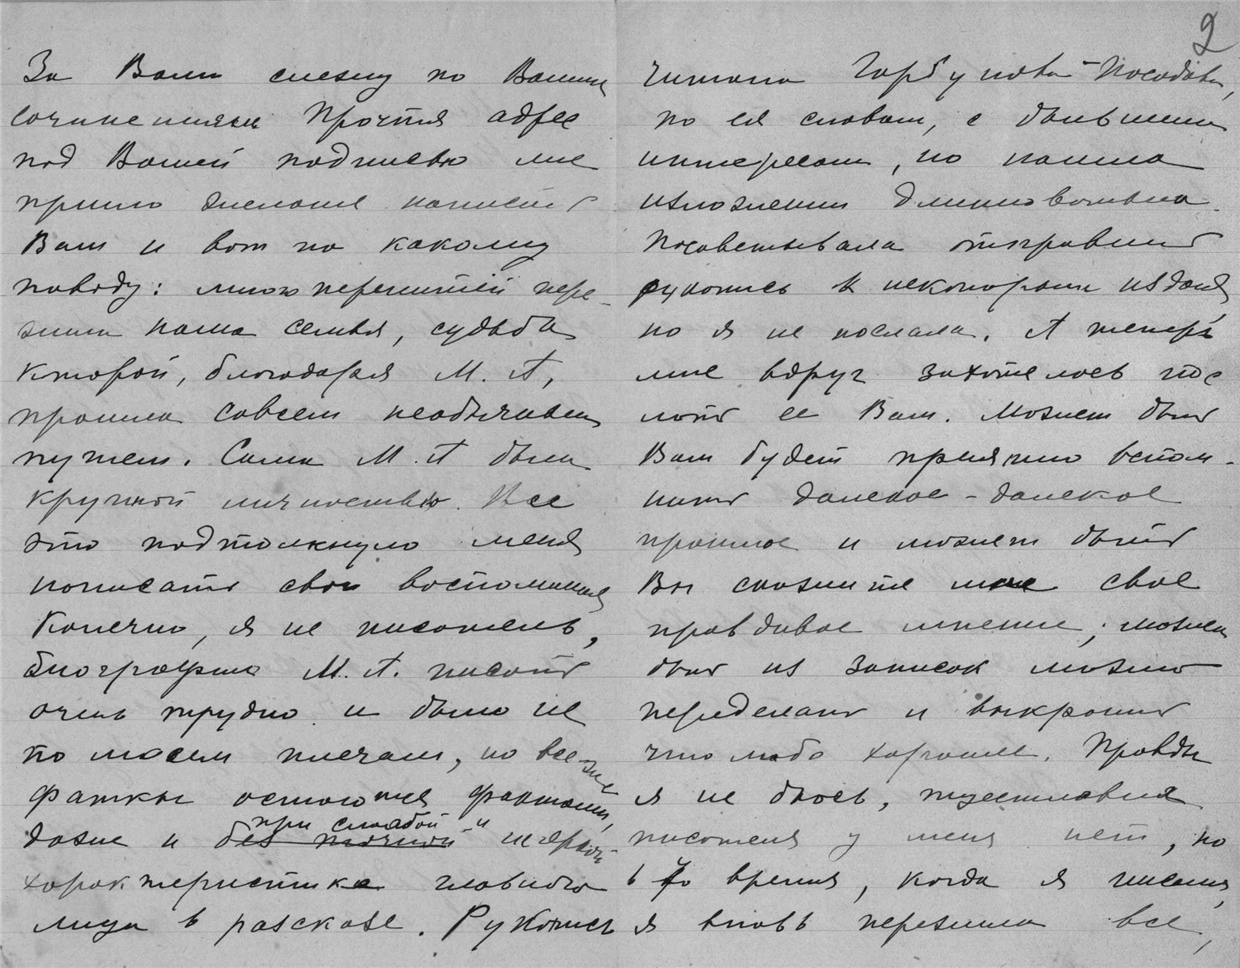 За Вами слежу по Вашим
сочинениям Прочтя адрес
под Вашей подписью мне
пришло желание написать
Вам и вот по какому
поводу: много перипетий пере-
жила наша семья, судьба
которой, благодаря М. А,
прошла совсем необычным
путем. Сама М. А была
крупной личностью. Все
это подтолкнуло меня
написать свои воспоминания
Конечно, я не писатель,
биографию М. А. писать
очень трудно и было не
по моим плечам, но все-же
факты остаются фактами,
даже и без точной при слабой и неяркой
характеристике главного
лица в рассказе. Рукопись
2
читала Горбунова-Посадова,
по ея словам, с большим
интересом, но нашла
изложении длинноватым.
Посоветывала отправить
рукопись в некоторыя издания,
но я не послала. А теперь
мне вдруг захотелось пос
лать ее Вам. Может быть
Вам будет приятно вспом-
нить далекое-далекое
прошлое и может быть
Вы скажите мне свое
правдивое мнение; может
быть из записок можно
переделать и выкроить
что либо хорошее. Правды
я не боюсь, тщеславия
писателя у меня нет, но
в то время, когда я писала,
я вновь пережила все,